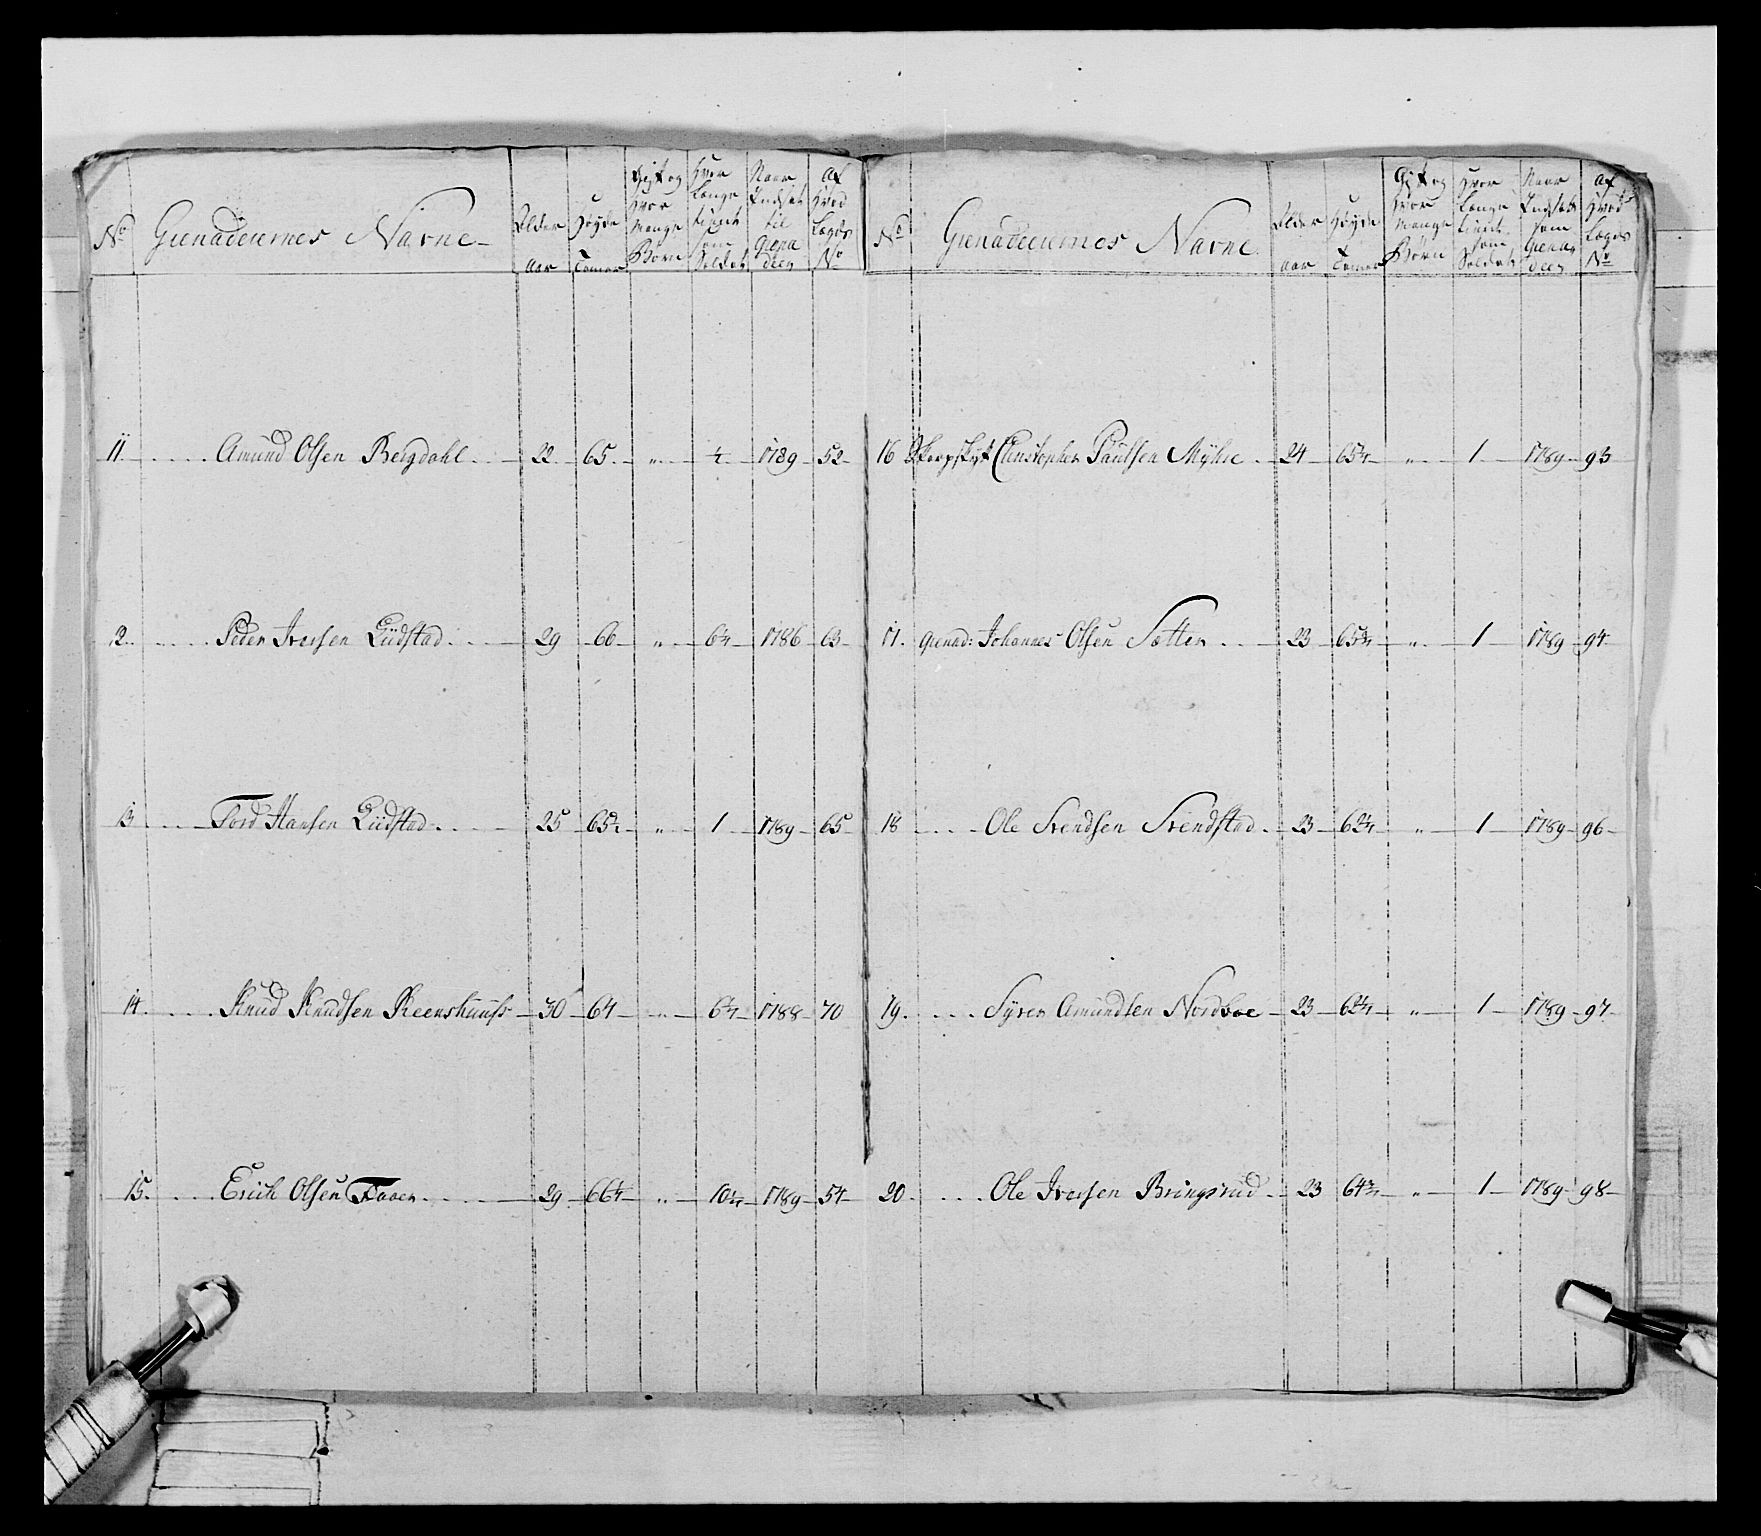 No
Grenadeernes Navne
Alder
aar
Høyde
Tomer
Gift og
Hvor
Mange
Børn
Hvor
Længe
tient
som
Soldat
Naar
Indsat
til
Grena
deer
Af
Hvad
Lægds
No
11. Amund Olsen Bergdahl 22 65 " 1789 52
12. Peder Iversen Liidstad 29 66 " 1786 63
13 Tord Hansen Liidstad 25 " 1 1789 65
14. Knud Knudsen 30 64 " 1788 70
15. Erich Olsen 29 " 1789 54
No
Grenadeernes Navne
Alder
aar
Høyde
Tomer
Gift og
Hvor
Mange
Børn
Hvor
Længe
tient
som
Soldat
Naar
Indsat
som
Grena
deer
Af
Hvad
Lægds
No
16 Skarpskyt Christopher Paulsen Myhre 24 " 1 1789 93
17. Grenad: Johannes Olsen Sætter 23 " 1 1789 94
18 Ole Svendsen Svendstad 23 " 1 1789 96
19. Syver Amundsen Nordboe 23 " 1 1789 97
20. Ole Iversen Bringsrud 23 " 1 1789 98